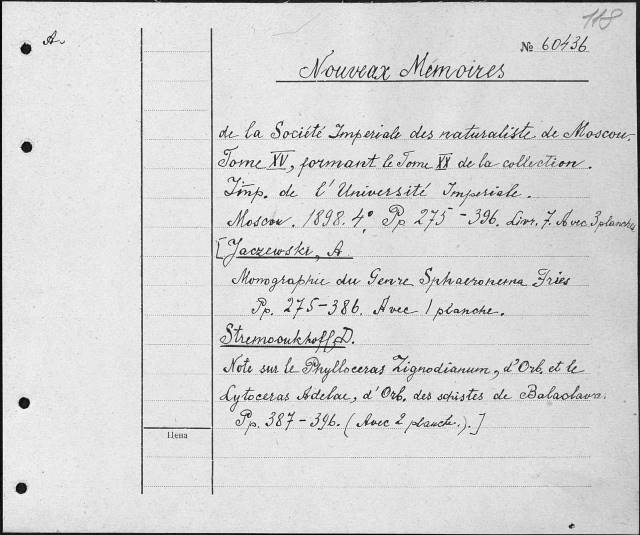 118
A.
№ 60436
Nouveax Mémoires
de la Société Imperiale des naturaliste de Moscou.
Tome XV, formant le Tome XX de la collection.
Imp. de l'Université Imperiale.
Moscou. 1898. 4° Pp 275-396. Livr. 7. Avec 3 planches
[Jaczewski, A
Monographie du Genre Sphaeronema Fries
Pp. 275-386. Avec 1 planche.
Stremooukhoff, D.
Note sur le Phylloceras Zignodianum, d'Orb. et le
Lytoceras Adelae, d'Orb. des schistes de Balaclava.
Pp. 387-396. (Avec 2 planche.).]
Цена